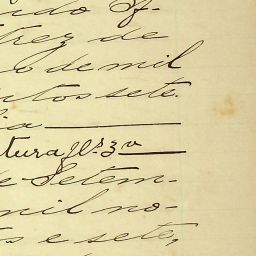 trez de
o de mil
ntos sete.
tura Nº 3 v
e Setem-
mil no-
s e sete,